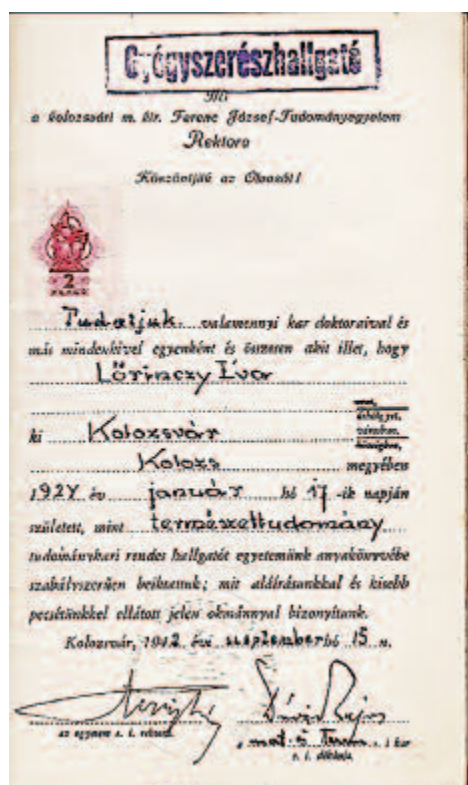 Gyógyszerészhallgató
Mi
a kolozsvári m. kir. Ferenc József-Tudományegyetem
Rektora
Köszöntjük az Olvasót!
2
Tudatjuk valamennyi kar doktoraival és
más mindenkivel egyenként és összesen akit illet, hogy
Lőrinczy Éva
ki Kolozsvár
községben,
Kolozs megyében
1924 év január hó 17-ik napján
született, mint természettudomány
tudománykari rendes hallgatót egyetemünk anyakönyvébe
szabályszerűen beiktattuk; mit aláírásunkkal és kisebb
pecsétünkkel ellátott jelen okmánnyal bizonyítunk.
Kolozsvár, 1942 évi szeptember hó 15 n.
az egyetem e. i. rektora.
mat. s Term. i kar
e. i. dékánja.